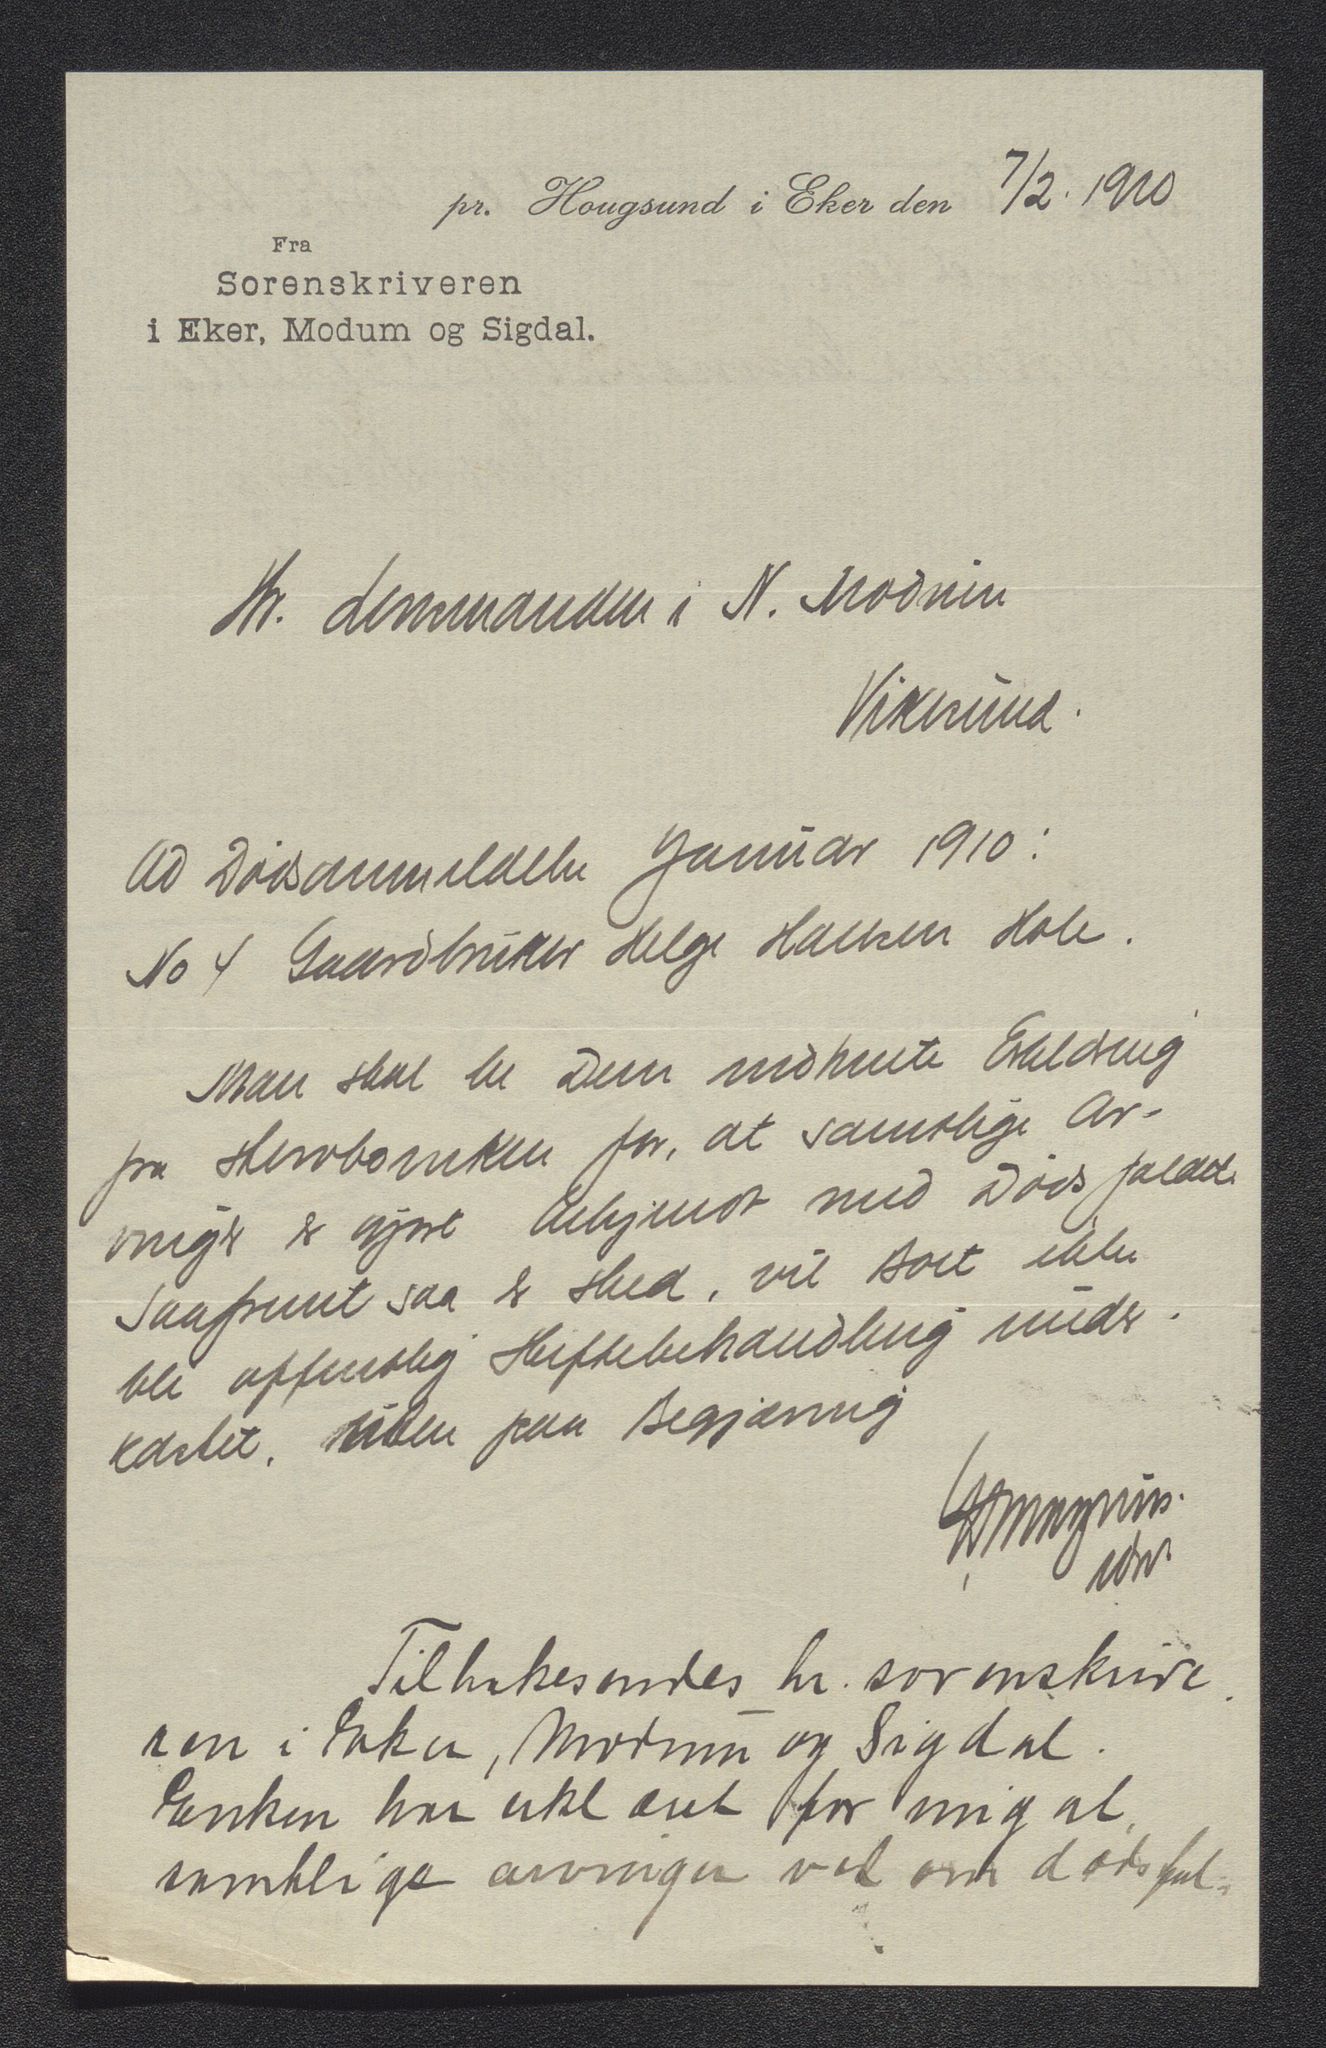 pr. Hougsund i Eker den 7/2. 1910
Fra
Sorenskriveren
i Eker, Modum og Sigdal.
Hr. Lensmanden i N. Modum
Vikersund.
Ad Dødsanmeldelse Januar 1910:
No 4 Gaardbruker Helge Hansen Hole.
Man skal be Dem indhente Erklæring
fra Stervboenken for, at samtlige Ar-
vinger er gjort bekjendt med Dødsfaldet.
Saafremt saa er skeed, vil Boet ikke
bli offentlig Skiftebehandling under-
kastet, uden paa Begjæring
Magnus.
cst.
Tilbakesendes hr. sorenskrive
ren i Eker, Modum og Sigdal.
Enken har erklæret for mig at
samtlige arvinger vet om dødsfal-